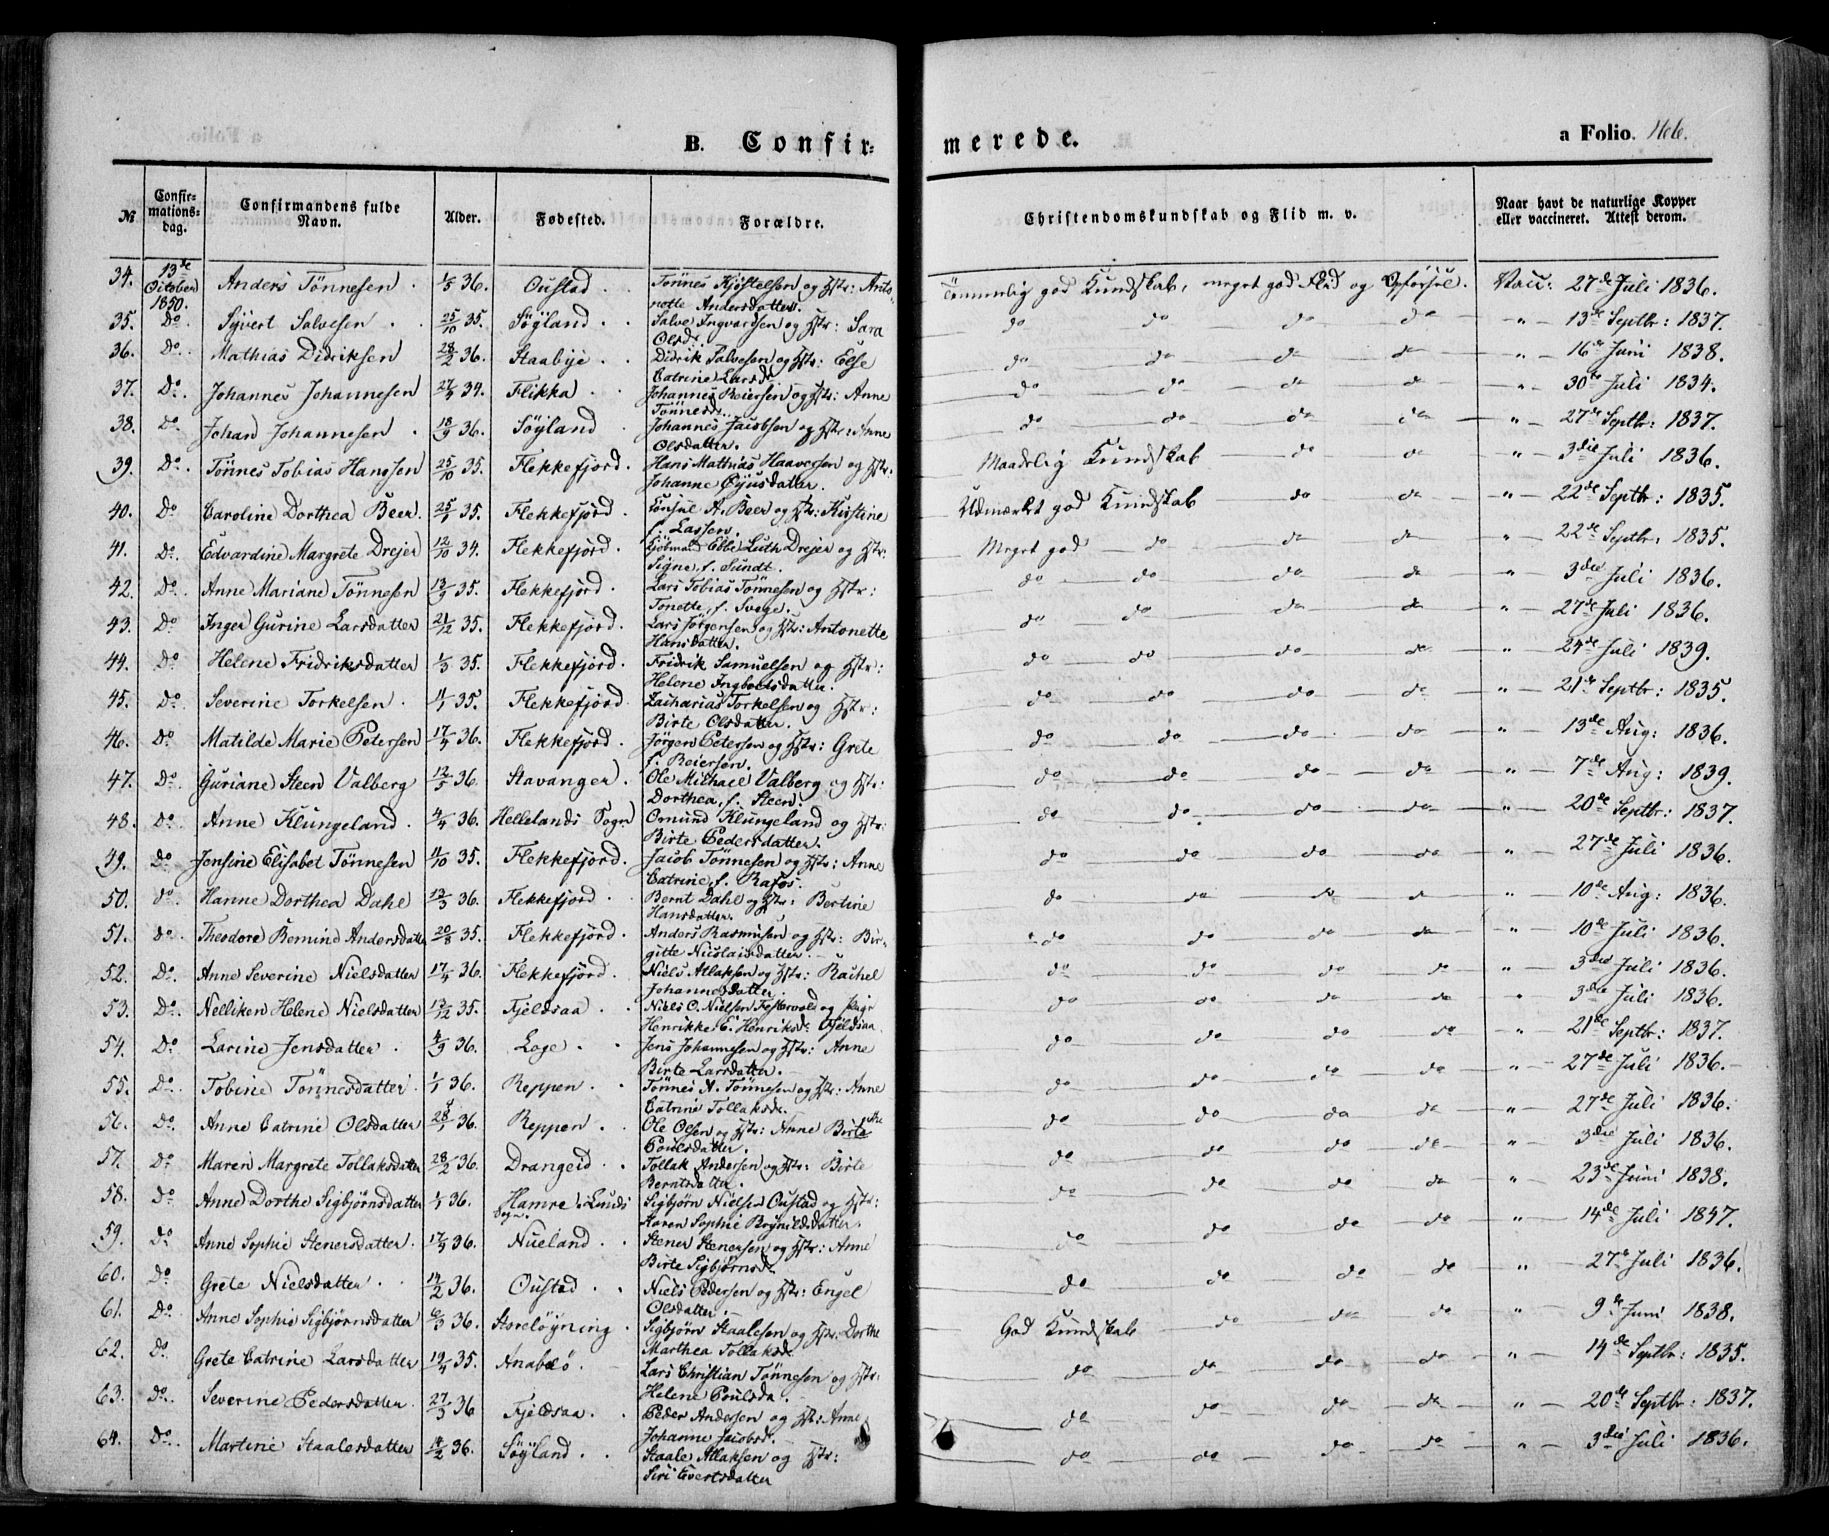 B. Confir- merede. a Folio.
No Confir-mations-dag. Confirmandens fulde Navn. Alder. Fødested. Forældre. Christendomskundskab og Flid m. v. Naar havt de naturlige Kopper eller vaccineret. Attest derom.
34. 13de October 1850. Anders Tönnesen. 36. Oustad. Tönnes Kjöstelsen og Hstr: Antonette Andersdatter. Temmerlig god Kundskab, meget god Flid og Opførsel. Vacc: 27de Juli 1836.
35. Do Syvert Salvesen 25/10 35. Söyland. Salve Ingvardsen og Hstr: Sara Olsd. do do do do " 13de Septbr: 1837.
36. Do Mathias Didriksen 28/2 36. Staabye. Didrik Salvesen og Hstr: Else Catrine Larsd. do do do do " 16de Juni 1838.
37. Do Johannes Johannesen 34. Flikka. Johannes Reiersen og Hstr: Anne Tönnesd. do do do do " 30te Juli 1834.
38. Do Johan Johannesen 36. Söyland. Johannes Jacobsen og Hstr: Anne Olsdatter. do do do do " 27de Septbr: 1837.
39. Do Tönnes Tobias Hansen 25/10 35. Flekkefjord. Hans Mathias Haaversen og Hstr: Johanne Gjusdatter. Maadelig Kundskab do do " 3die Juli 1836.
40. Do Caroline Dorthea Beer. 35. Flekkefjord. Consul A. Beer og Hstr: Kirstine f. Lassen. Udmærket god Kundskab do do " 22de Septbr: 1835.
41. Do Edvardine Margrete Drejer 12/10 34. Flekkefjord. Kjöbmand Ebbe Luth Drejer og Hstr: Signe, f. Sundt. Meget god do do do " 22de Septbr: 1835.
42. Do Anne Mariane Tönnesen 35. Flekkefjord. Lars Tobias Tönnesen og Hstr: Tonette, f. Svege. do do do do " 3die Juli 1836.
43. Do Inger Gurine Larsdatter 21/12 35. Flekkefjord. Lars Jørgensen og Hstr: Antonette Hansdatter. do do do do " 27de Juli 1836.
44. Do Helene Fridriksdatter 35. Flekkefjord. Fridrik Samuelsen og Hstr: Helene Ingbretsdatter. do do do do " 24de Juli 1839.
45. Do Severine Torkelsen. 35. Flekkefjord. Zacharias Torkelsen og Hstr: Birte Olsdatter. do do do do " 21de Septbr: 1835.
46. Do Matilde Marie Petersen 36. Flekkefjord. Jørgen Petersen og Hstr: Grete f. Reiersen. do do do do " 13de Aug: 1836.
47. Do Guriane Steen Valberg 36. Stavanger. Ole Michael Valberg og Hstr: Dorthea, f. Steen. do do do do " 7de Aug: 1839.
48. Do Anne Klungeland. 4/4 36. Hellelands Sogn Omund Klungeland og Hstr: Birte Pedersdatter. do do do do " 20de Septbr: 1837.
49. Do Jensine Elisabet Tönnesen 35. Flekkefjord. Jacob Tönnesen og Hstr: Anne Catrine, f. Rafos. do do do do " 27de Juli 1836.
50. do Hanne Dorthea Dahl 36. Flekkefjord. Bernt Dahl og Hstr: Bertine Hansdatter. do do do do " 10de Aug: 1836.
51. do Theodore Bernine Andersdatter 20/8 35. Flekkefjord. Anders Rasmusen og Hstr: Birgitte Nicolaisdatter. do do do do " 10de Juli 1836.
52. Do Anne Severine Nielsdatter 17/4 36. Flekkefjord. Niels Atlaksen og Hstr: Rachel Johannesdatter. do do do do " 3die Juli 1836.
53. Do Nelliken Helene Nielsdatter 35. Fjeldsaa. Niels O. Nielsen Festervold og Pige Henrikke E. Henriksd. Fjeldsaa do do do do " 3die Juli 1836.
54. Do Larine Jensdatter. 36. Loge. Jens Johannesen og Hstr: Anne Birte Larsdatter. do do do do " 21de Septbr: 1837.
55. Do Tobine Tönnesdatter. 36. Reppen. Tönnes A. Tönnesen og Hstr: Anne Catrine Tollaksd. do do do do " 27de Juli 1836.
56. Do Anne Catrine Olsdatter 28/1 36. Reppen. Ole Olsen og Hstr: Anne Birte Poulsdatter. do do do do " 27de Juli 1836.
57. Do Maren Margrete Tollaksdatter 28/2 36. Drangeid. Tollak Andersen og Hstr: Birte Berntsdatter. do do do do " 3die Juli 1836.
58. Do Anne Dorthe Sigbjørnsdatter 36. Hamre i Lunds Sogn. Sigbjørn Nielsen Oustad og Hstr: Karen Sophie Brynildsdatter. do do do do " 23de Juni 1838.
59. Do Anne Sophie Stenersdatter. 36. Nueland. Stener Stenersen og Hstr: Anne Birte Sigbjørnsd. do do do do " 14de Juli 1847.
60. Do Grete Nielsdatter 14/2 36. Oustad. Niels Pedersen og Hstr: Engel Olsdatter do do do do " 27de Juli 1836.
61. Do Anne Sophie Sigbjørnsdatter 6/3 36. Storeløyning. Sigbjørn Staalesen og Hstr: Dorthe Marthea Tollaksd. God Kundskab do do do " 9de Juni 1838.
62. Do Grete Catrine Larsdatter 19/4 35. Anabeö. Lars Christian Tönnesen og Hstr: Helene Poulsda. do do do do " 14de Septbr: 1835.
63. Do Severine Pedersdatter. 27/3 36 Fjeldsaa. Peder Andersen og Hstr: Anne Johanne Jacobsd. do do do do " 20de Septbr: 1837.
64. Do Martine Staalesdatter 14/2 36. Söyland. Staale Atlaksen og Hstr: Siri Evertsdatter do do do do " 3die Juli 1836.